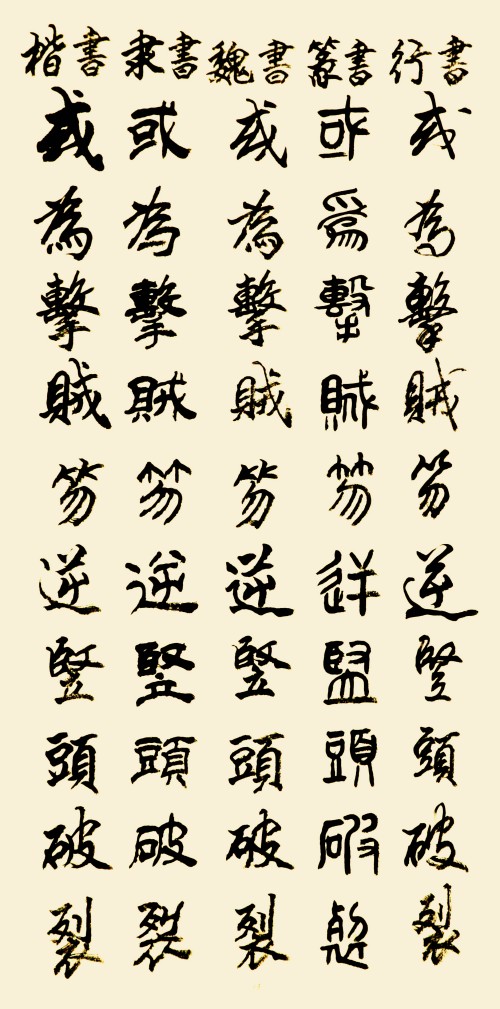 楷書 或為擊賊笏逆豎頭破裂
隶書 或為擊賊笏逆豎頭破裂
魏書 或為擊賊笏逆豎頭破裂
篆書 或為擊賊笏逆豎頭破裂
行書 或為擊賊笏逆豎頭破裂